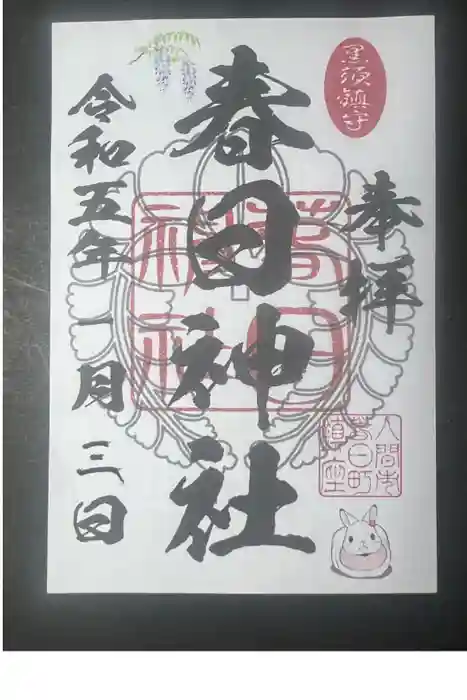 黒須鎮守
奉拝
春日神社
春日神社
入間市
春日町
鎮座
令和五年一月三日